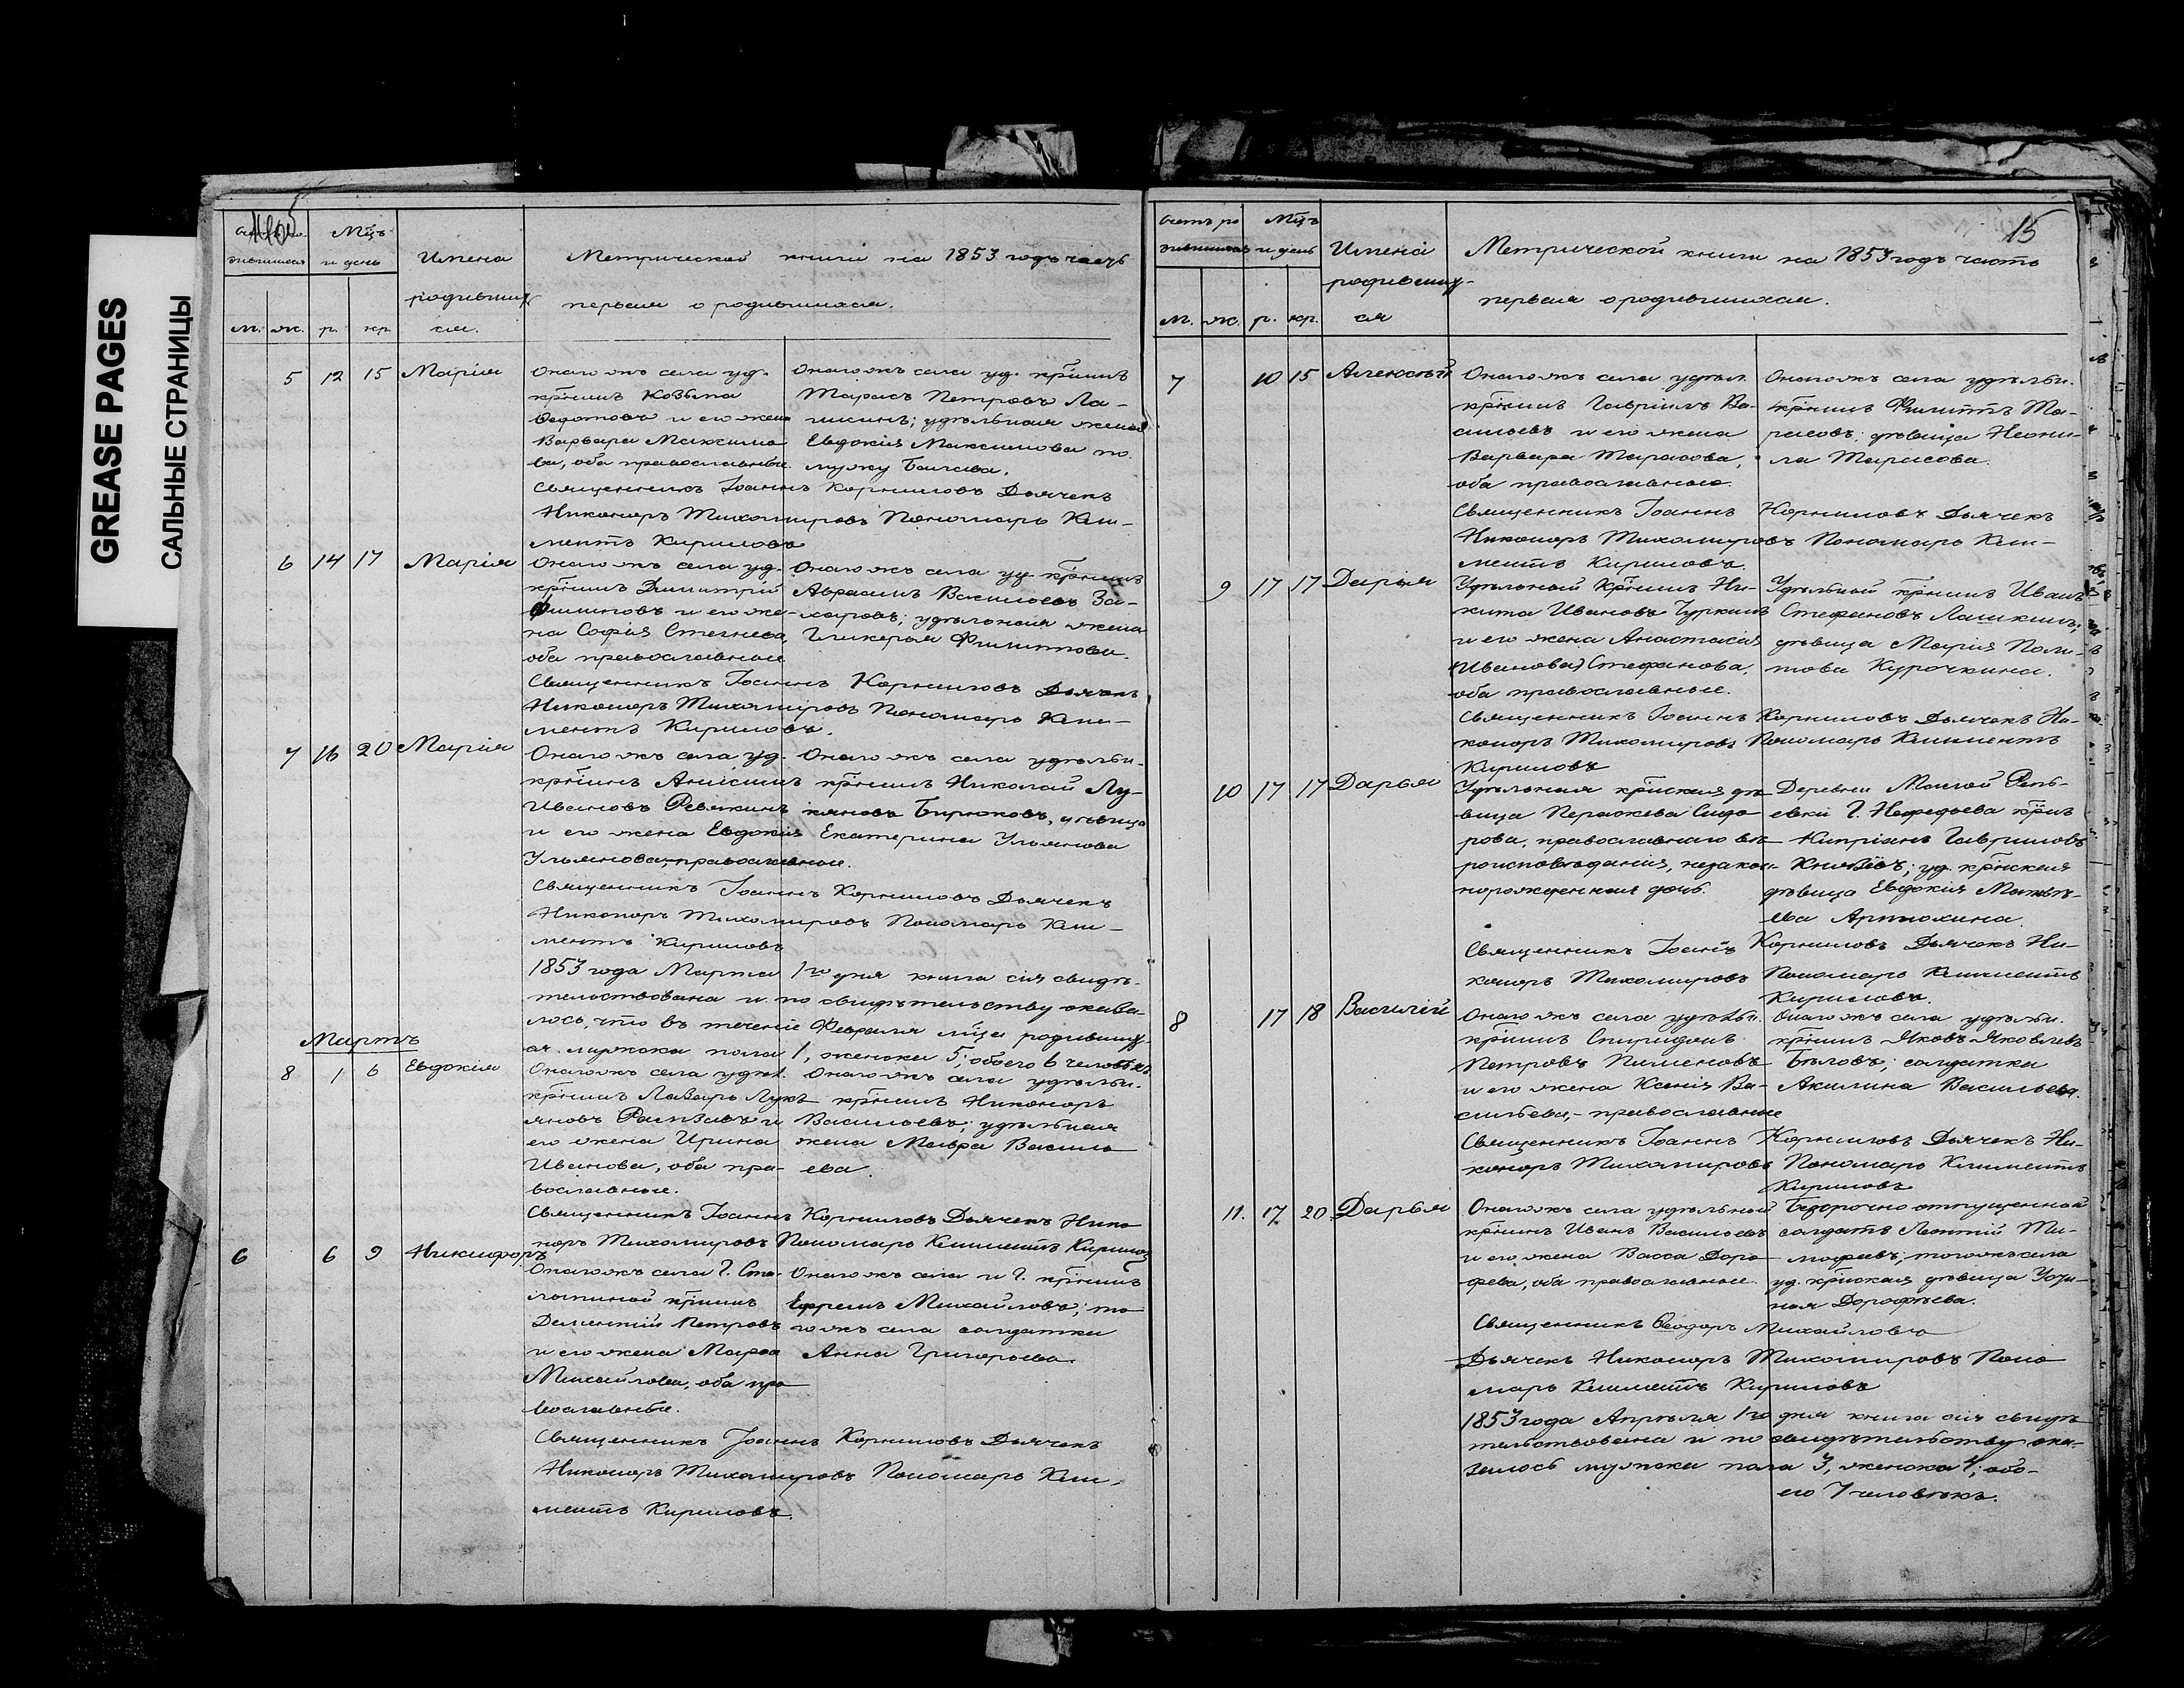 GREASE PAGES
САЛЬНЫЕ СТРАНИЦЫ
Мцъ
и день
Имена
родивших
ся.
м. ж. р. кр.
Метрической книги на 1853 годъ часть
первая о родившихся.
5 12 15 Марія
Онагожъ села уд.
крстнинъ Козьма
Ѳедотовъ и его жена
Варвара Максимо
ва, оба православные.
Онагожъ села уд. крстнинъ
Тарасъ Петровъ Ла-
шкинъ; удѣльная жена
Евдокія Максимова по
мужу
Священникъ Іоаннъ Корниловъ Дьячекъ
Никаноръ Тихомировъ Пономарь Кли-
ментъ Кириловъ
6 14 17 Марія
Онагожъ села уд.
крстнинъ Димитрій
Филиповъ и его же-
на Софія Стегнеева,
оба православные
Онагожъ села уд. крстнинъ
Аврамъ Васильевъ За-
харовъ; удѣльная жена
Гликерья Филиппова.
Священникъ Іоаннъ Корниловъ Дьячекъ
Никаноръ Тихомировъ Пономарь Кли-
ментъ Кириловъ.
7 16 20 Марія
Онагожъ села уд.
крстнинъ Анисимъ
Ивановъ Ревякинъ
и его жена Евдокія
Ульянова, православные.
Онагожъ села удѣльн.
крстнинъ Николай Лу-
кяновъ Бирюковъ, дѣвица
Екатерина Ульянова
Священникъ Іоаннъ Корниловъ Дьячекъ
Никаноръ Тихомировъ Пономарь Кли-
ментъ Кириловъ
1853 года Марта 1го дня книга сія свидѣ-
тельствована и по свидѣтельству оказа-
лось, что въ теченіе Февраля мца родивших
ся мужска пола 1, женска 5; обоего 6 человѣкъ
Мартъ
8 1 6 Евдокія
Онагожъ села удѣл.
крстнинъ Лазарь Лукь
яновъ и
его жена Ирина
Иванова, оба пра-
вославные.
Онагожъ села удѣльн.
крстнинъ Никаноръ
Васильевъ; удѣльная
жена Мавра Василь
ева.
Священникъ Іоаннъ Корниловъ Дьячекъ Ника
норъ Тихомировъ Пономарь Климентъ Кирилов
6 6 9 Никифоръ
Онагожъ села Г. Ста-
крстнинъ
Дементій Петровъ
и его жена Марфа
Михайлова, оба пра
вославные.
Онагожъ села и Г. крстнинъ
Ефремъ Михайловъ; то
гожъ села солдатка
Анна Григорьева.
Священникъ Іоаннъ Корниловъ Дьячекъ
Никаноръ Тихомировъ Пономарь Кли-
ментъ Кириловъ.
15
Счетъ ро
дившихся
Мцъ
и день
Имена
родивших-
ся
м. ж. р. кр.
Метрической книги на 1853 годъ часть
первая о родившихся.
7 10 15 Алексѣй
Онагожъ села удѣл.
крстнинъ Гавріилъ Ва-
сильевъ и его жена
Варвара Тарасова,
оба православные.
Онагожъ села удѣльн.
крстнинъ Филиппъ Та-
расовъ; дѣвица Неони-
ла Тарасова.
Священникъ Іоаннъ Корниловъ Дьячекъ
Никаноръ Тихомировъ Пономарь Кли-
ментъ Кириловъ.
9 17 17 Дарья
Удѣльный крстнинъ Ни-
кита Ивановъ Чуркинъ
и его жена Анастасія
(Иванова) Стефанова,
оба православные.
Удѣльной крстнинъ Иванъ
Стефановъ Лашкинъ;
дѣвица Марія Поли-
това Курочкина.
Священникъ Іоаннъ Корниловъ Дьячекъ Ни-
каноръ Тихомировъ Пономарь Климентъ
Кириловъ
10 17 17 Дарья
Удѣльная крстнская дѣ-
вица Пераскева Сидо
рова, православнаго вѣ-
роисповѣданія, незакон-
норожденная дочь.
Деревни Малой Репь-
евки Г. Нефедьева крстн
Кипріанъ Гавриловъ
Князевъ; уд. крстнская
дѣвица Евдокія Матвѣ-
ева Артюхина.
Священникъ Іоаннъ Корниловъ Дьячекъ Ни-
каноръ Тихомировъ Пономарь Климентъ
Кириловъ.
8 17 18 Василій
Онагожъ села удѣльн.
крстнинъ Спиридонъ
Петровъ Пименовъ
и его жена Ксенія Ва-
сильева, - православные
Онагожъ села удѣльн.
крстнинъ Яковъ Яковлевъ
Бѣловъ; солдатка
Акилина Васильева.
Священникъ Іоаннъ Корниловъ Дьячекъ Ни-
каноръ Тихомировъ Пономарь Климентъ
Кириловъ
11. 17 20 Дарья
Онагожъ села удѣльный
крстнинъ Иванъ Васильевъ
и его жена Васса Доро
феева, оба православные.
Безсрочно отпущенной
солдатъ Леонтій Ти-
мофеевъ; тогожъ села
уд. крстнская дѣвица Усти-
нья Дорофѣева.
Священникъ Ѳеодоръ Михайловъ
Дьячекъ Никаноръ Тихомировъ Поно
марь Климентъ Кириловъ
1853 года Апрѣля 1го дня книга сія свидѣ
тельствована и по свидѣтельству ока-
залось мужска пола 3, женска 4; обо-
его 7 человѣкъ.